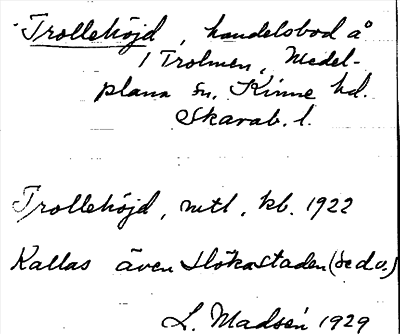 Trollehöjd, handelsbod å
1 Trolmen, Medel-
plana sn. Kinne hd.
Skarab. l.
Trollehöjd, mtl, kb. 1922
Kallas även Hökastaden (se d.o.)
L. Madsén 1929